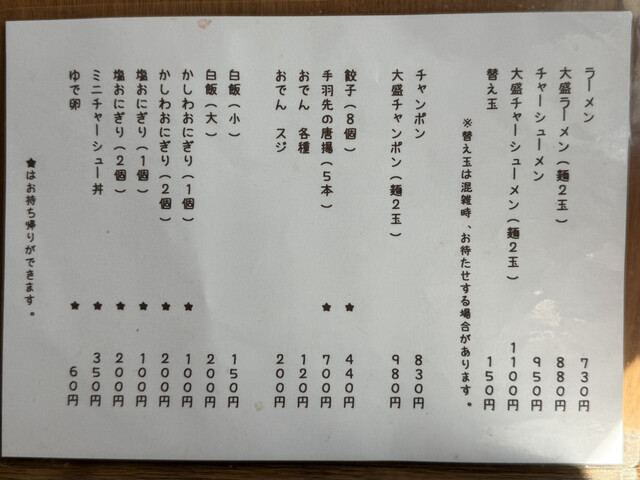 ラーメン 730円
大盛ラーメン(麺2玉) 880円
チャーシューメン 950円
大盛チャーシューメン(麺2玉) 1100円
替え玉 150円
※替え玉は混雑時、お待たせする場合があります。
チャンポン 830円
大盛チャンポン(麺2玉) 980円
餃子(8個) ★ 440円
手羽先の唐揚(5本) ★ 700円
おでん 各種 120円
おでん スジ 200円
白飯(小) 150円
白飯(大) 200円
かしわおにぎり(1個) ★ 100円
かしわおにぎり(2個) ★ 200円
塩おにぎり(1個) ★ 100円
塩おにぎり(2個) ★ 200円
ミニチャーシュー丼 ★ 350円
ゆで卵 ★ 60円
★はお持ち帰りができます。